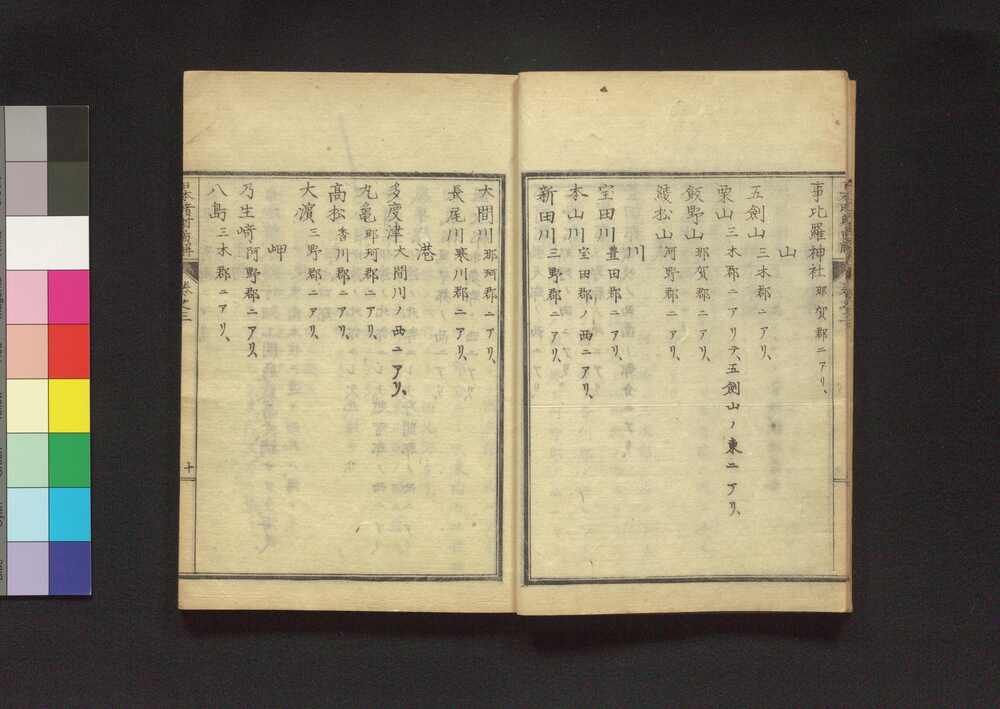 事比羅神社 那賀郡ニアリ、
山
五劍山 三木郡ニアリ、
栗山 三木郡ニアリテ、五劍山ノ東ニアリ、
飯野山 那賀郡ニアリ、
綾松山 河野郡ニアリ、
川
宝田川 豊田郡ニアリ、
本山川 宝田川ノ西ニアリ、
新田川 三野郡ニアリ、
大間川 那珂郡ニアリ、
長尾川 寒川郡ニアリ、
港
多度津 大間川ノ西ニアリ、
丸亀 那珂郡ニアリ、
高松 香川郡ニアリ、
大濱 三野郡ニアリ、
岬
乃生崎 阿野郡ニアリ、
八島 三木郡ニアリ、
卷之三
十